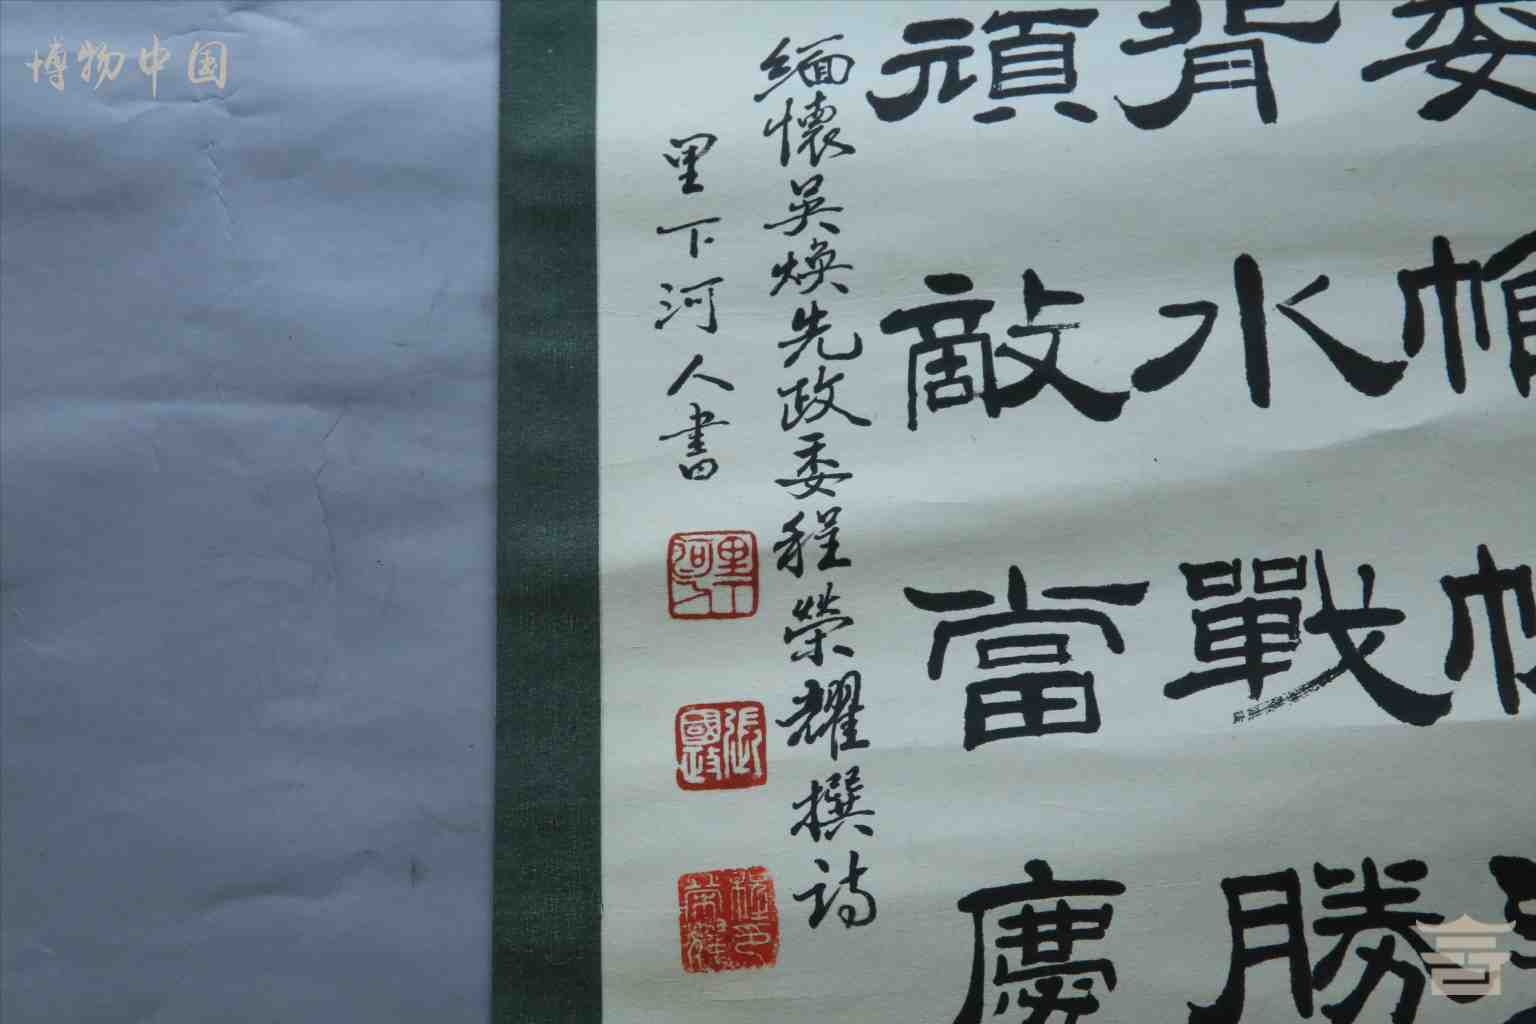 博物中国
委帷帷
背水戰勝
頑敵當慶
緬懷吳焕先政委程榮耀撰詩
里下河人書
里下河人
張國政
程榮耀印